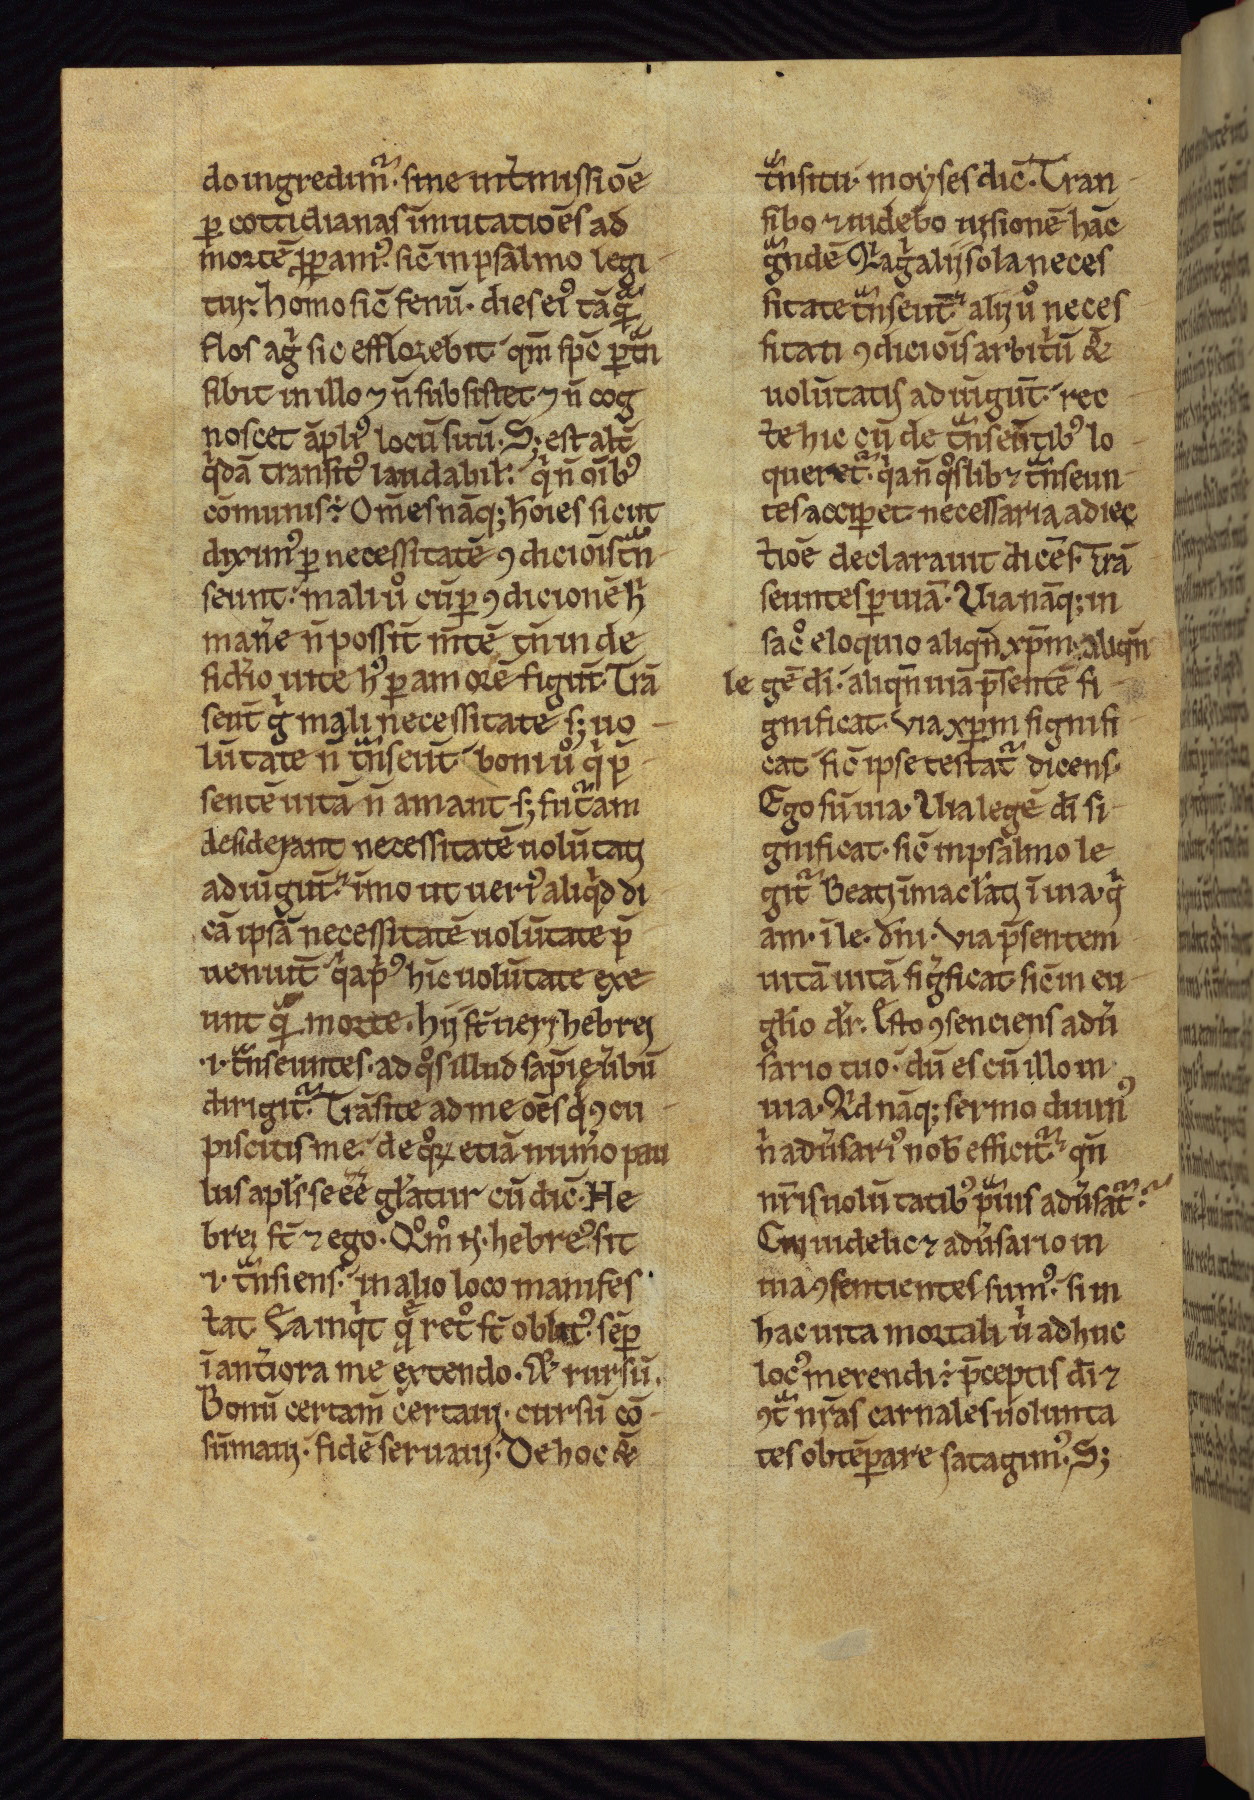 do ingredimᷣ. sine int̾missiōe
ꝑ cottidianas īmutatiōes ad
mortē ꝓꝑamꝰ. sic̄ in psalmo legi
tur. homo sic̄ fenū. dies eiꝰ tāqᷓ
flos agⁱ sic efflorebit qm̄ sp̄c ꝑtᷓn
sibit in illo ⁊ n̄ subsistet ⁊ n̄ cog
noscet āpliꝰ locū suū. S; est alt̄e
qⁱdā transitꝰ laudabil̓. qⁱ n̄ oībꝰ
cōmunis ē. Om̄es nāq; hoīes sicut
diximꝰ ꝑ necessitatē ꝯdiciōis tᷓn
seunt. mali uͦ cū ꝑ ꝯdicionē hu̓
man̄e n̄ possīt m̄tē tn̄ in de
sid̓io uite hꝰ ꝑ amorē figūt. Trā
seūt gͥ mali necessitate s; uo
lūtate n̄ tᷓnseūt. boni uͦ qⁱ p̄
sentē uitā n̄ amant s; fut̾am
desiderant necessitatē uolūtatꝭ
adiūgūt. īmo ut ueriꝰ aliqⁱd di
cā ipsā necessitatē uolūtate p̄
ueniūt qⁱa pⁱꝰ hīc uolūtate exe
unt qᷓ morte. hij st̄ ueri hebrei
.i. tᷓnseuntes. ad qͦs illud sapīe u̓bū
dirigitᷣ. Trāsite ad me oēs qⁱ ꝯcu
piscitis me. de qͦꝝ etiā num̓o pau
lus apl̓s se eē gl̓atur cū dic̄. He
brei st̄ ⁊ ego. Qͦmͦ is. hebreꝰ sit
.i. tᷓnsiens. in alio loco manifes
tat. Ea inqⁱt qᷓ retͦ st̄ oblitꝰ. sēꝑ
ī ant̾iora me extendo. Et rursū.
Bonū certam̄ certaui. cursū cō
sūmaui. fidē seruaui. De hoc &
tᷓnsitu. moyses dic̄. Tran
sibo ⁊ uidebo uisionē hāc
gᷓndē. Qⁱa gͥ alij sola neces
sitate tᷓnseūt. alij uͦ neces
sitati ꝯdiciōis arbitⁱū &
uolūtatis adiūgūt. rec
te hic cū de tᷓnseūtibꝰ lo
queretᷣ. qⁱa n̄ qͦslibꝫ tᷓnseun
tes acciꝑet necessaria adiec
tiōe declarauit dicēs. Trā
seuntes ꝑ uiā. Uia nāq; in
sacͦ eloquio aliqn̄ xp̄m. aliqn̄
legē di̅. aliqn̄ uiā p̄sentē si
gnificat. Via xp̄m signifi
cat sic̄ ipse testatᷣ dicens.
Ego sū uia. Uia legē di̅ si
gnificat. sic̄ in psalmo le
gitᷣ. Beati īmacl̓ati ī uia. qⁱ
am. ī le. dn̄i. Via p̄sentem
uitā uitā sigⁱficat. sic̄ in eu
gl̓io dr̄. Esto ꝯsenciens adu̓
sario tuo. dū es cū illo in
uia. Ad nāq; sermo diuinꝰ
n̄ adu̓sariꝰ nob̄ efficitᷣ. qn̄
nr̄is uolūtatibꝰ pᷓuis adu̓satᷣ.
Cui uidelicꝫ adu̓sario in
uia ꝯsentientes sumꝰ. si in
hac uita mortali u̓ adhuc
locꝰ merendi ē. p̄ceptis di̅ ⁊
ꝯtᷓ nr̄as carnales uolunta
tes obtēꝑare satagimꝰ. S;